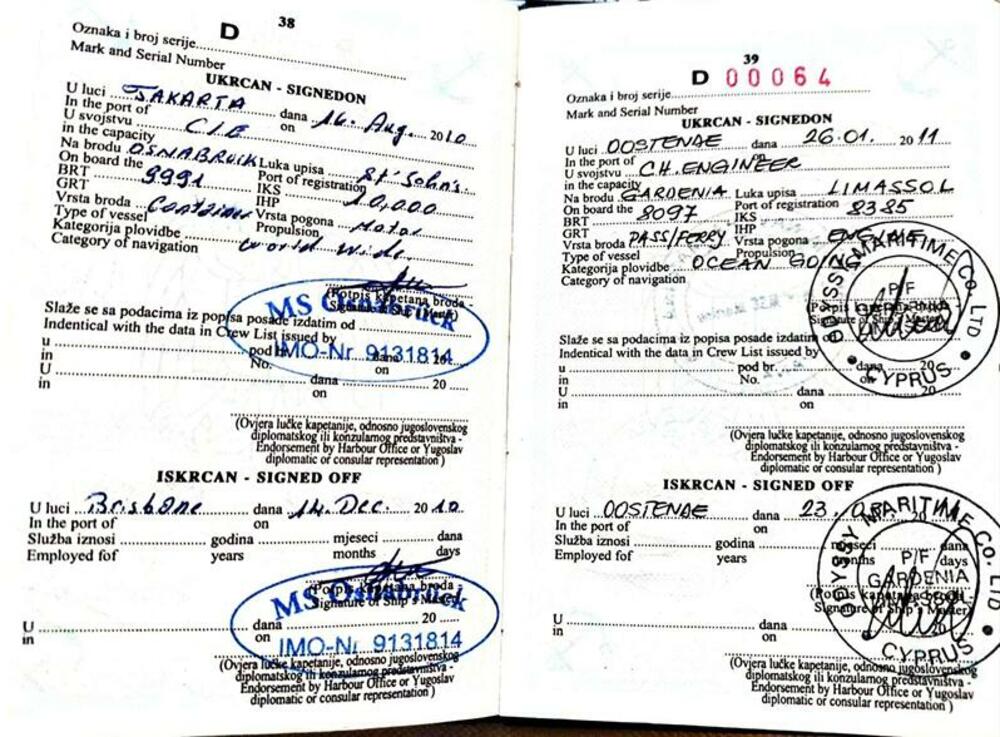 38
D
Oznaka i broj serije
Mark and Serial Number
UKRCAN - SIGNEDON
U luci JAKARTA dana 16. Aug. 2010
In the port of on
U svojstvu C/E
in the capacity
Na brodu OSNABRUCK Luka upisa St' John's.
On board the Port of registration
BRT 9991 IKS 10,000
GRT IHP
Vrsta broda Container Vrsta pogona Motor
Type of vessel Propulsion
Kategorija plovidbe World Wide
Category of navigation
(Potpis kapetana broda
Signature of Ship's Master)
MS Osnabrück
IMO-Nr. 9131814
Slaže se sa podacima iz popisa posade izdatim od
Indentical with the data in Crew List issued by
u pod br. dana 20
in No. on
U dana 20
in on
(Ovjera lučke kapetanije, odnosno jugoslovenskog
diplomatskog ili konzularnog predstavništva -
Endorsement by Harbour Office or Yugoslav
diplomatic or consular representation)
ISKRCAN - SIGNED OFF
U luci Brisbane dana 14. Dec. 2010
In the port of on
Služba iznosi godina mjeseci dana
Employed fof years months days
(Potpis kapetana broda -
Signature of Ship's Master)
MS Osnabrück
IMO-Nr. 9131814
U dana 20
in on
(Ovjera lučke kapetanije, odnosno jugoslovenskog
diplomatskog ili konzularnog predstavništva -
Endorsement by Harbour Office or Yugoslav
diplomatic or consular representation)
39
D 00064
Oznaka i broj serije
Mark and Serial Number
UKRCAN - SIGNEDON
U luci OOSTENDE dana 26.01. 2011
In the port of on
U svojstvu CH. ENGINEER
in the capacity
Na brodu GARDENIA Luka upisa LIMASSOL
On board the Port of registration
BRT 8097 IKS 8385
GRT IHP
Vrsta broda PASS/FERRY Vrsta pogona ENGINE
Type of vessel Propulsion
Kategorija plovidbe OCEAN GOING
Category of navigation
ODYSSY MARITIME Co. LTD
P/F
GARDENIA
CYPRUS
(Potpis kapetana broda
Signature of Ship's Master)
Slaže se sa podacima iz popisa posade izdatim od
Indentical with the data in Crew List issued by
u pod br. dana 20
in No. on
U dana 20
in on
(Ovjera lučke kapetanije, odnosno jugoslovenskog
diplomatskog ili konzularnog predstavništva -
Endorsement by Harbour Office or Yugoslav
diplomatic or consular representation)
ISKRCAN - SIGNED OFF
U luci OOSTENDE dana 23. 20
In the port of on
Služba iznosi godina mjeseci dana
Employed fof years months days
ODYSSY MARITIME Co. LTD
P/F
GARDENIA
CYPRUS
(Potpis kapetana broda -
Signature of Ship's Master)
U dana 20
in on
(Ovjera lučke kapetanije, odnosno jugoslovenskog
diplomatskog ili konzularnog predstavništva -
Endorsement by Harbour Office or Yugoslav
diplomatic or consular representation)